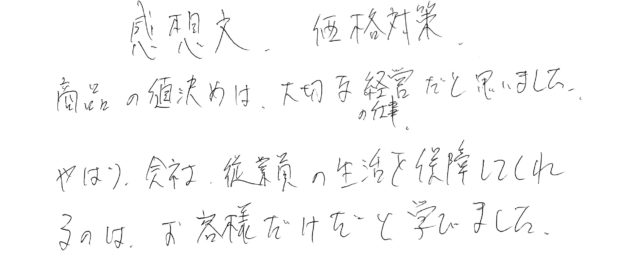 感想文、価格対策、
商品の値決めは、大切な経営だと思いました。
の仕事
やはり、会社、従業員の生活を保障してくれ
るのは、お客様だけだと学びました。